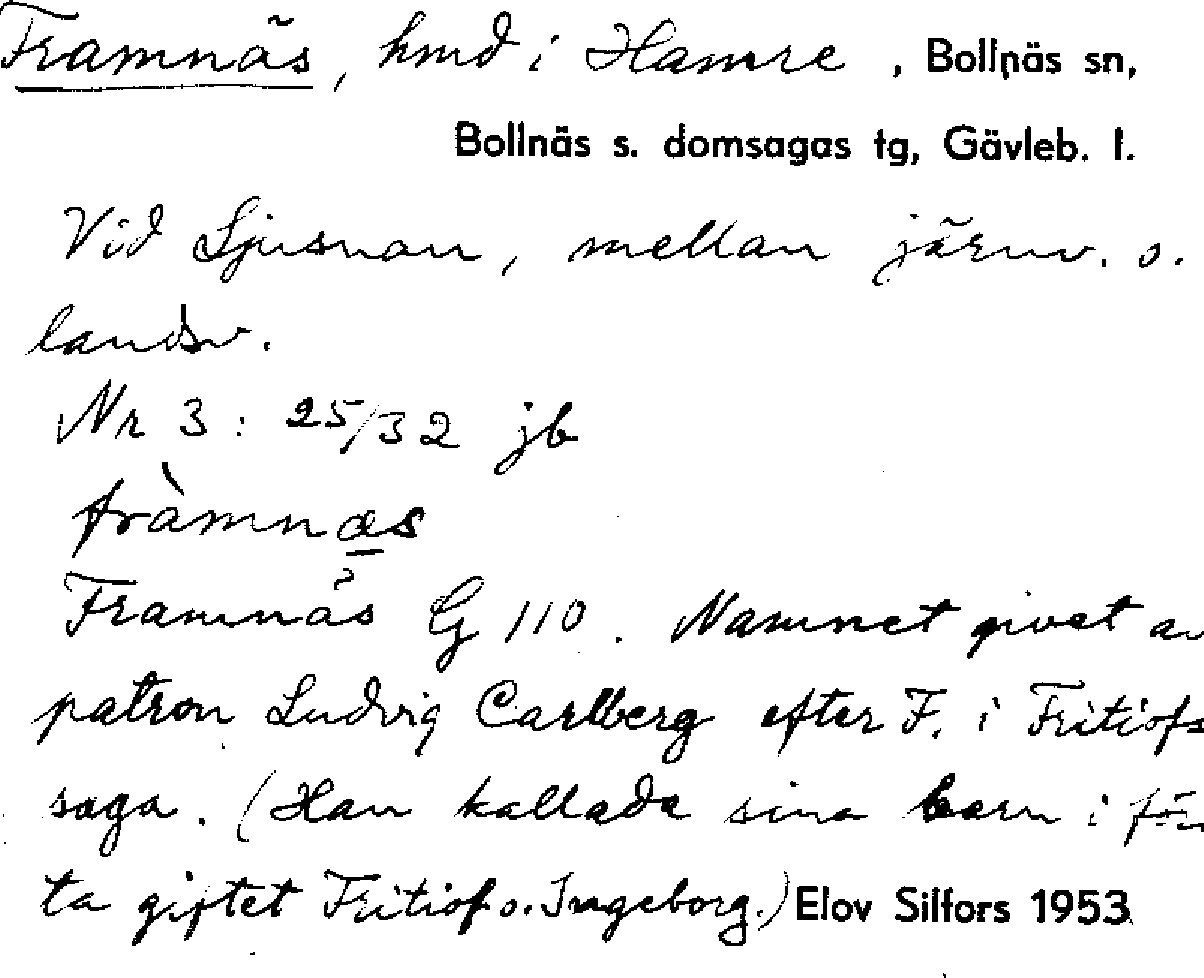 Framnäs, hmd i Hamre, Bollnäs sn,
Bollnäs s. domsagas tg, Gävleb. l.
Vid Ljusnan, mellan järnv. o.
landsv.
Nr 3: 25/32 jb
fràmnæs
Framnäs G 110. Namnet givet av
patron Ludvig Carlberg efter F. i Fritiofs
saga. (Han kallade sina barn i förs
ta giftet Fritiof o. Ingeborg.) Elov Silfors 1953